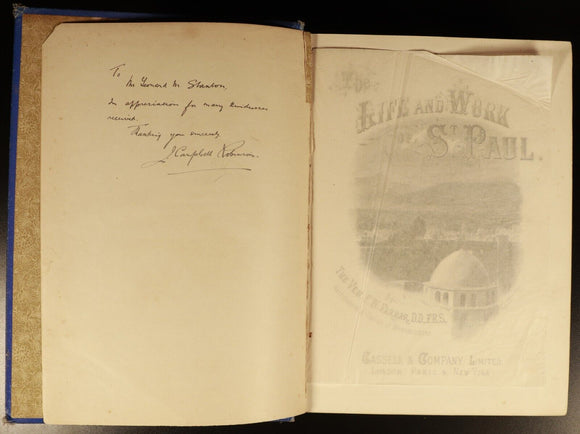 To
Mr Leonard M. Stanton,
In appreciation for many kindnesses
received.
Thanking you sincerely
J Campbell Robinson.
The
LIFE AND WORK
OF ST PAUL.
BY
THE VEN. F.W. FARRAR, D.D., F.R.S.
CASSELL & COMPANY, LIMITED
LONDON, PARIS & NEW YORK